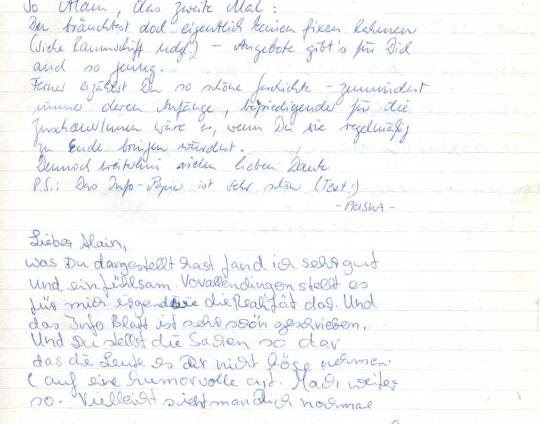 So Alain, das zweite Mal:
Du bräuchtest doch eigentlich keinen fixen Rahmen
(siehe Raumschiff udgl.) – Angebote gibt's für Dich
auch so genug.
Ferner erzählst Du so schöne Geschichte – zumindest
immer deren Anfänge, befriedigender für die
ZuschauerInnen wäre es, wenn Du sie regelmäßig
zu Ende bringen würdest.
Dennoch weiterhin vielen lieben Dank
P.S.: Das Info-Papier ist sehr schön (Text!)
- PRISKA -
Lieber Alain,
was Du dargestellt hast fand ich sehr gut
und einfühlsam. Vovallendingen stellt es
für mich irgendwie die Realität dar. Und
das Info Blatt ist sehr schön geschrieben.
Und Du stellst die Sachen so dar
das die Leute es Dir nicht böge nehmen.
( auf eine humorvolle art. Mach weiter
so. Vielleicht sieht man dich nochmal